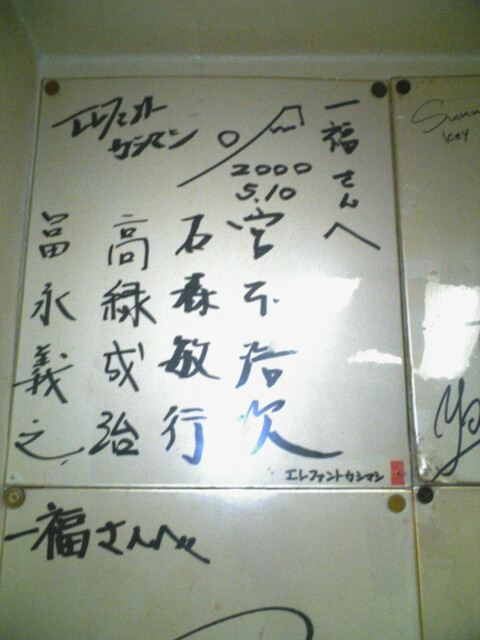 一福さんへ
2000
5.10
宮本浩次
石森敏行
高緑成治
冨永義之
エレファント
カシマシ
エレファントカシマシ
一福さんへ